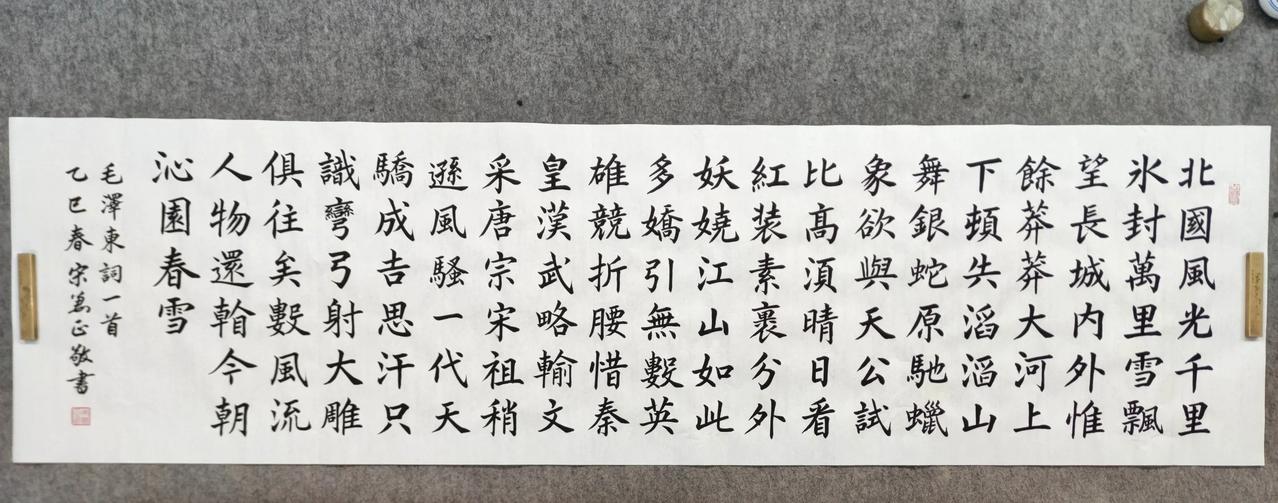 北國風光千里
氷封萬里雪飄
望長城内外惟
餘莽莽大河上
下頓失滔滔山
舞銀蛇原馳蠟
象欲與天公試
比髙須晴日看
紅装素裹分外
妖嬈江山如此
多嬌引無數英
雄競折腰惜秦
皇漢武略輸文
采唐宗宋祖稍
遜風騷一代天
驕成吉思汗只
識彎弓射大雕
俱往矣數風流
人物還今朝
沁園春雪
毛澤東詞一首
乙巳春宋為正敬書